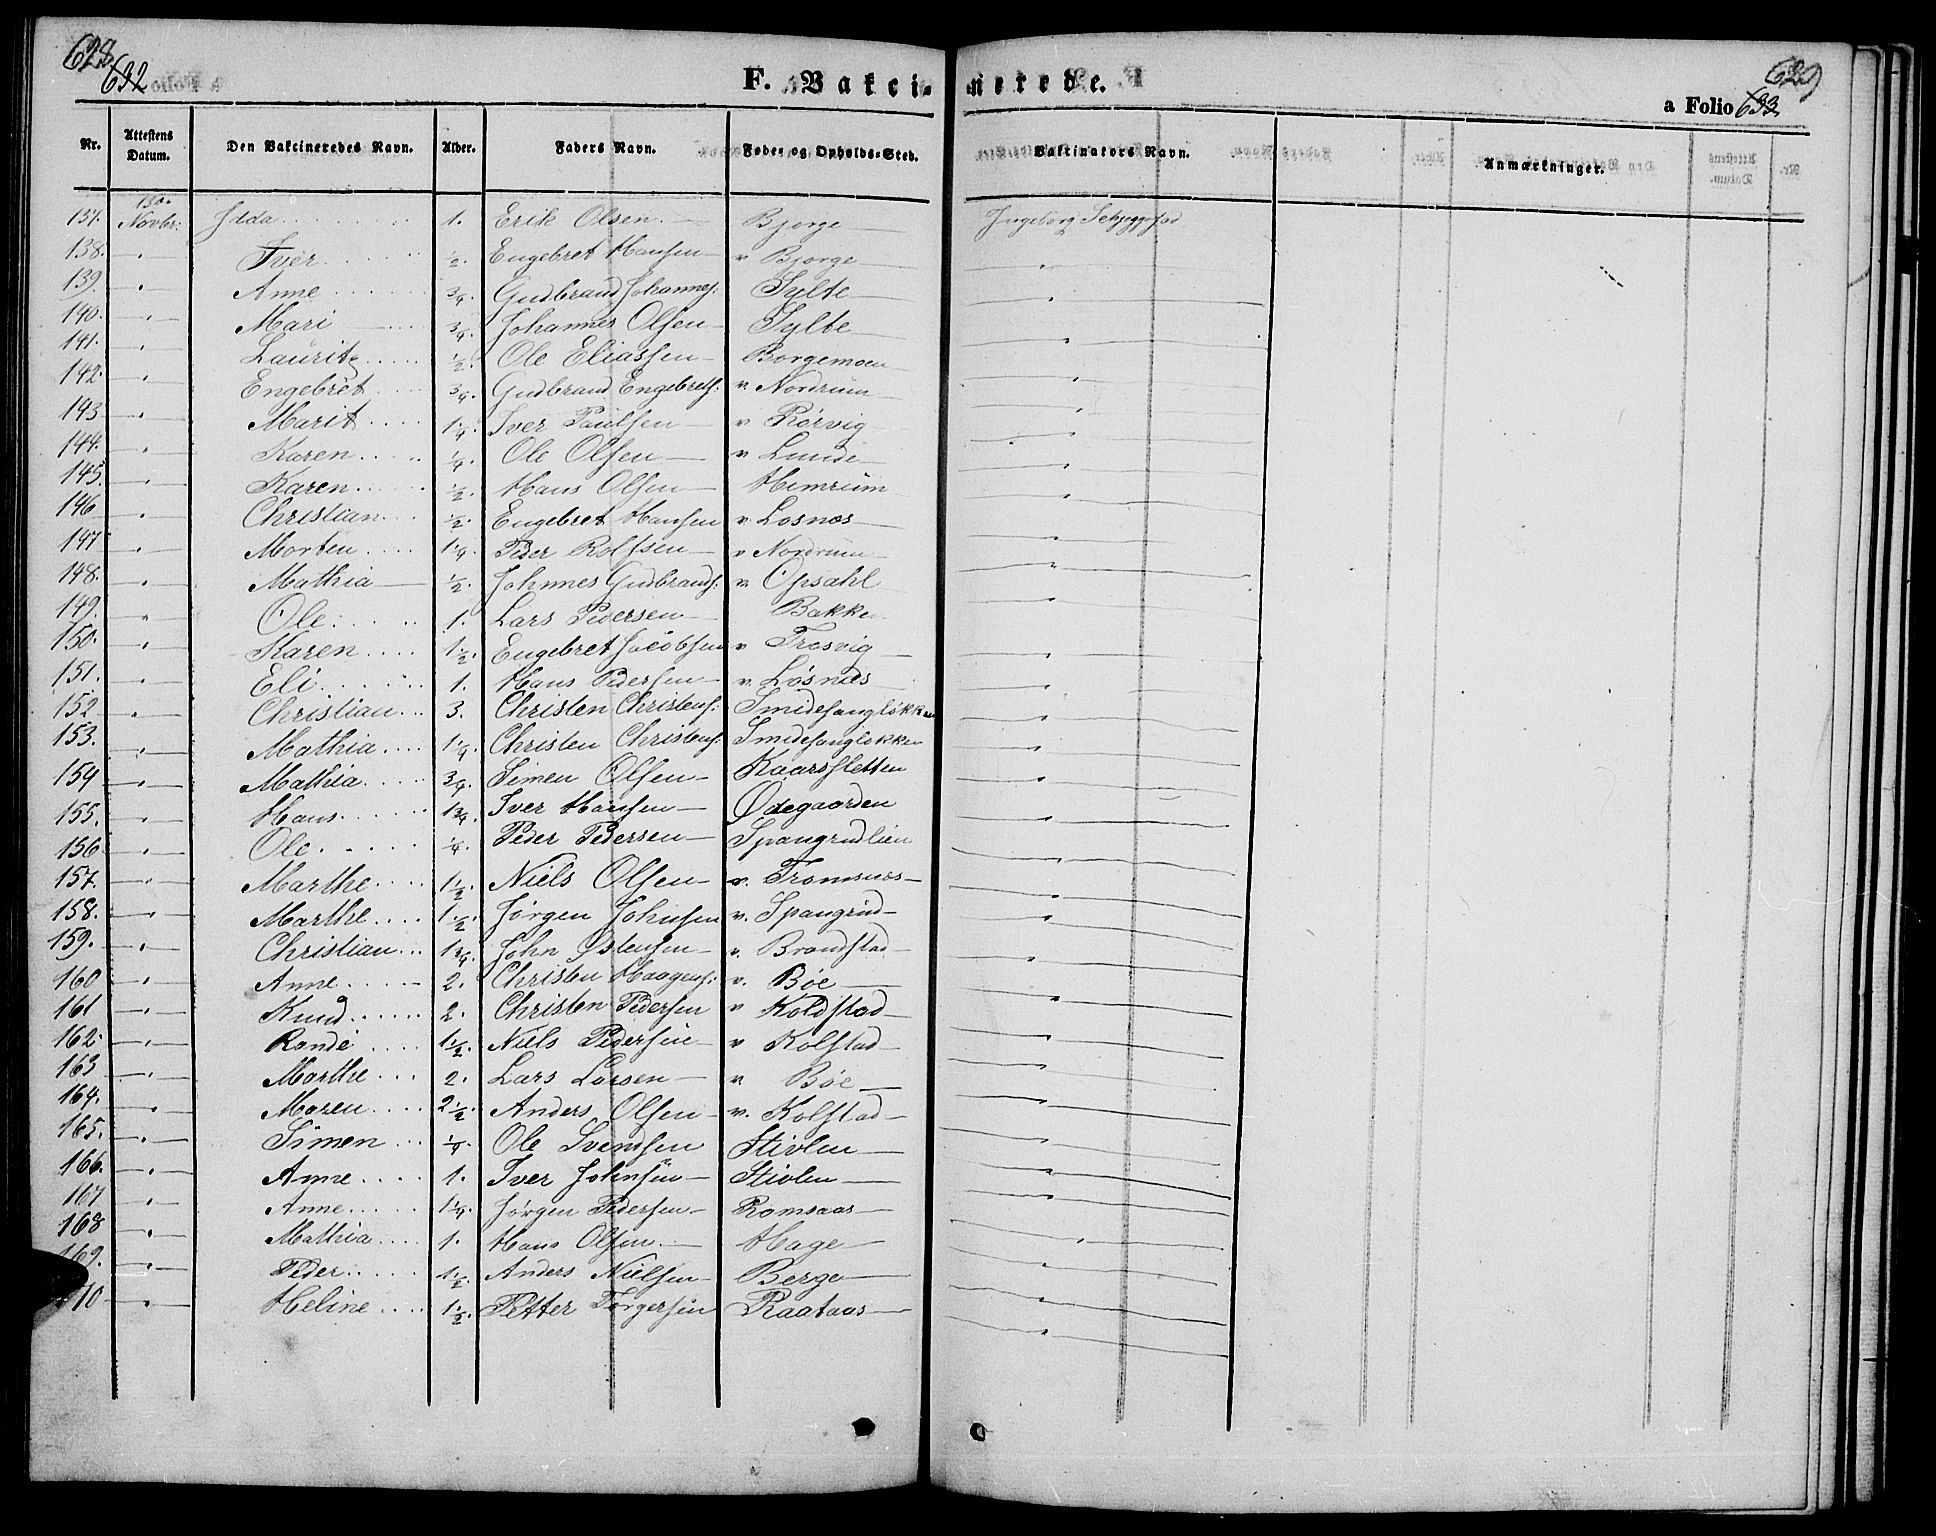 628
632
F. Vakcinerede.
629
a Folio 633
Nr. Attestens Datum. Den Vakcineredes Navn. Alder. Faders Navn. Føde- og Opholds-Sted. Vakcinators Navn. Anmærkninger.
137. 13de Novbr: Idda 1. Erik Olsen Bjorge Ingeborg
138. " Iver ½. Engebret Hansen v Bjorge "
139. " Anne ¾. Gudbrand Johannes: Sylte "
140. " Mari ¾. Johannes Olsen Sylte "
141. " Lauritz ½. Ole Eliassen Borgemoen "
142. " Engebret ¾. Gudbrand Engebrets: v. Nordrum "
143 " Marit 1¼. Iver Paulsen v Rørvig "
144. " Karen ¼. Ole Olsen v Lunde "
145. " Karen ½. Hans Olsen Hemrum "
146 " Christian ½. Engebret Hansen v Losnæs "
147 " Morten 1¼. Peder Rolfsen v Nordrum "
148. " Mathia ½. Johnnes Gudbrands: v. Opsahl "
149. " Ole 1. Lars Pedersen Bakke "
150. " Karen 1½. Engebret Jacobsen v Trosvig "
151. " Eli 1. Hans Pedersen v. Løsnæs "
152 " Christian 3. Christen Christens: Smidesangløkken "
153. " Mathia 1¼. Christen Christens: Smidesangløkken "
154 " Mathia ¾. Simen Olsen Kaarssletten "
155. " Hans 1¾. Iver Hansen Ødegaarden "
156 " Ole ¼. Peder Pedersen Spangrudlien "
157. " Marthe 1½. Niels Olsen v. Tromsnæs "
158. " Marthe 1½. Jørgen Johnsen v. Spangrud "
159. " Christian 1¾. John Østensen v. Brandstad "
160 " Anne 2. Christen Haagens: v. Bøe "
161 " Knud 2. Christen Pedersen v Koldstad "
162. " Rande 1½. Niels Pedersen v Kolstad "
163 " Marthe 2. Lars Larsen v. Bøe "
164. " Maren 2½. Anders Olsen v. Kolstad "
165. " Simen ¼. Ole Svendsen Stivlen "
166. " Anne 1. Iver Johnsen Stivlen "
167 " Anne 1¼. Jørgen Pedersen Romsaas "
168 " Mathia 1. Hans Olsen Hage "
169. " Peder 1½. Anders Nielsen Berge "
170 " Heline 1½. Petter Torgersen Raataas "